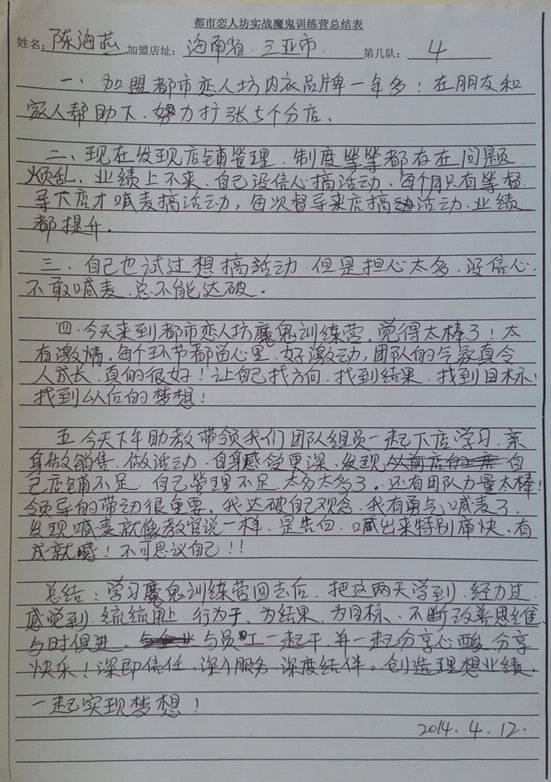 都市恋人坊实战魔鬼训练营总结表
姓名: 陈海燕 加盟店址: 海南省.三亚市. 第几队: 4
一、加盟都市恋人坊内衣品牌一年多！在朋友和
家人帮助下.努力扩张5个分店.
二、现在发现店铺管理.制度等等都存在问题
烦乱.业绩上不来.自己没信心搞活动.每个月只有等督
导下店才喊麦搞活动,每次督导来店搞活动.业绩
都提升.
三、自己也试过想搞活动.但是担心太多.没信心.
不敢喊麦.总不能达破.
四.今天来到都市恋人坊魔鬼训练营.觉得太棒了！太
有激情.每个环节都尚心里.好激动,团队的气氛真令
人成长.真的很好！让自己找方向.找到结果.找到目标！
找到以后的梦想！
五.今天下午助教带领我们团队组员一起下店学习.亲
身做销售.做活动.自身感觉更深.发现 自
己店铺不足.自己管理不足.太多太多了.还有团队力量太棒！
领导的带动很重要.我达破自己观念.我有勇气喊麦了.
发现喊麦就像教官说一样.是告白.喊出来特别痛快.有
成就感！不可思议自己！！
总结:学习魔鬼训练营回去后.把这两天学到.经力过.
感觉到.统统用上.行为于.为结果.为目标.不断改善思维.
与时俱进. 与员工一起干.并一起分享心酸.分享
快乐！深即信任.深入服务.深度结伴.创造理想业绩.
一起实现梦想！
2014.4.12.